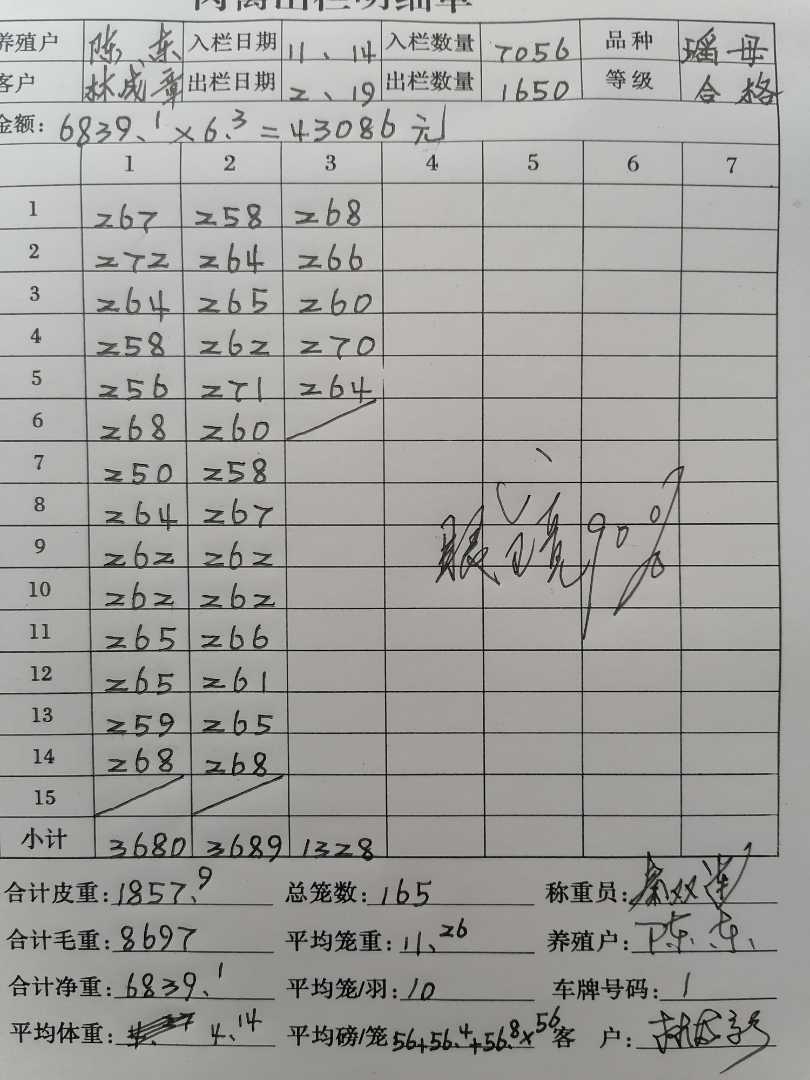 肉禽出栏明细单
养殖户 陈、东 入栏日期 11、14 入栏数量 7056 品种 瑶母
客户 林成章 出栏日期 2、19 出栏数量 1650 等级 合格
金额: 6839.1×6.3=43086元
1 2 3 4 5 6 7
1 267 258 268
2 272 264 266
3 264 265 260
4 258 262 270
5 256 271 264
6 268 260
7 250 258
8 264 267
9 262 262
10 262 262
11 265 266
12 265 261
13 259 265
14 268 268
15
90%
小计 3680 3689 1328
合计皮重: 1857.9 总笼数: 165 称重员: 秦双莲
合计毛重: 8697 平均笼重: 11.26 养殖户: 陈、东、
合计净重: 6839.1 平均笼/羽: 10 车牌号码: 1
平均体重: 4.14 平均磅/笼 56+56.4+56.8×56 客 户: